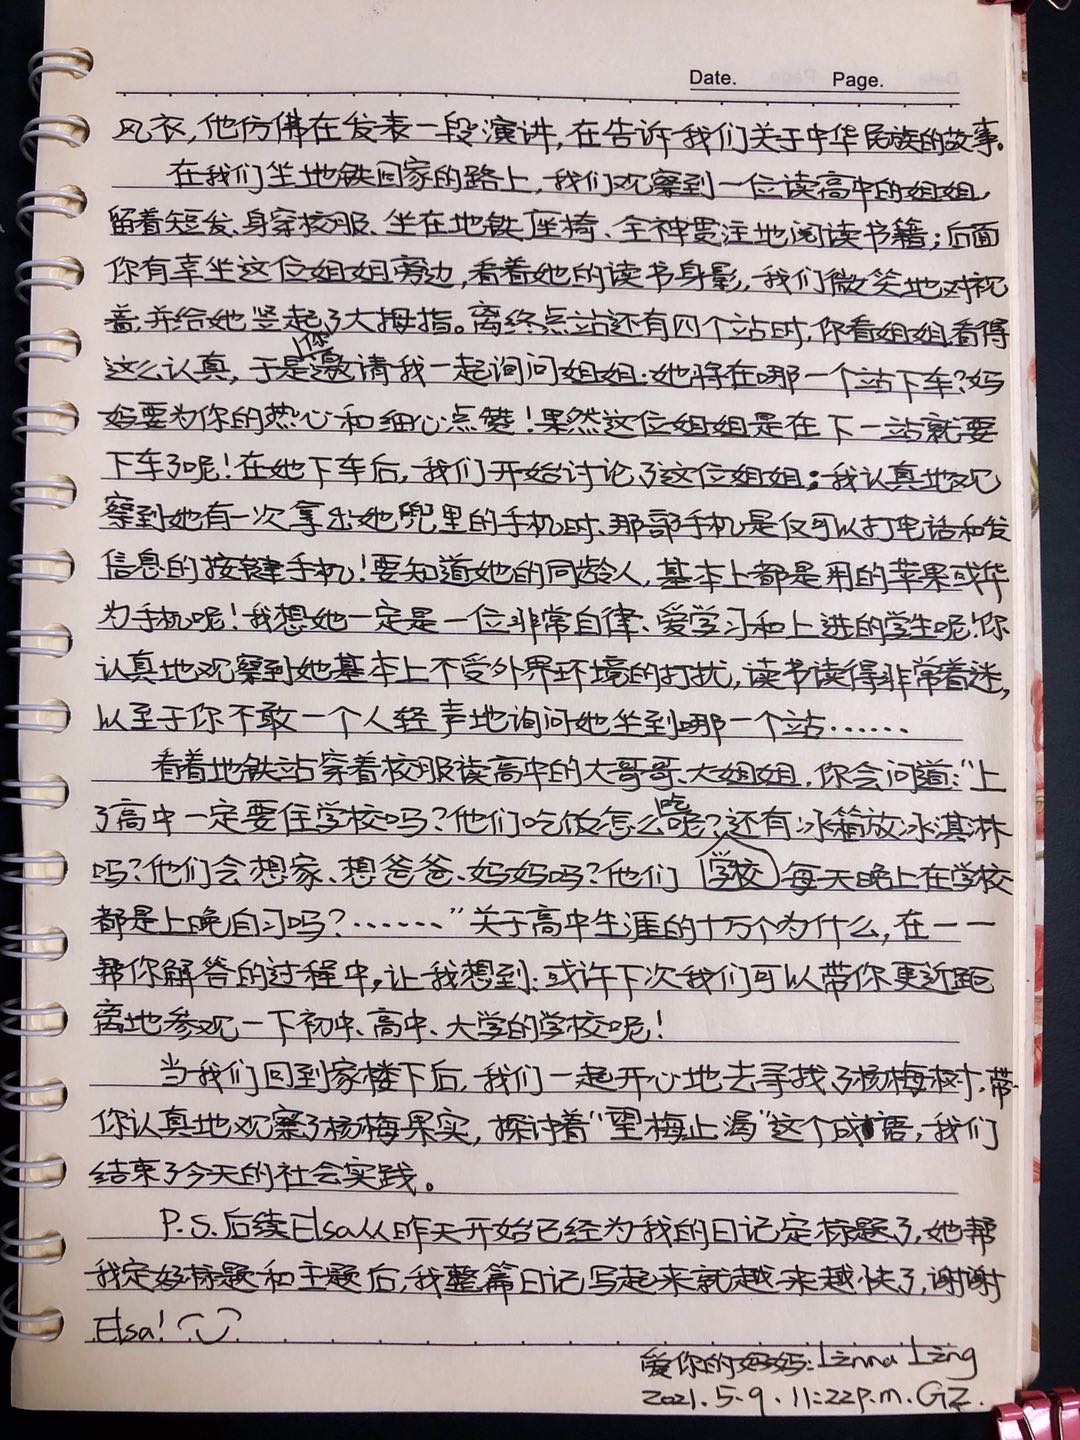 Date.        Page.
风衣，他仿佛在发表一段演讲，在告诉我们关于中华民族的故事。
在我们坐地铁回家的路上，我们观察到一位读高中的姐姐，
留着短发、身穿校服、坐在地铁座椅、全神贯注地阅读书籍；后面
你有幸坐这位姐姐旁边，看着她的读书身影，我们微笑地对视
着，并给她竖起了大拇指。离终点站还有四个站时，你看姐姐看得
这么认真，于是你邀请我一起询问姐姐：她将在哪一个站下车？妈
妈要为你的热心和细心点赞！果然这位姐姐是在下一站就要
下车了呢！在她下车后，我们开始讨论了这位姐姐；我认真地观
察到她有一次拿出她兜里的手机时、那部手机是仅可以打电话和发
信息的按键手机！要知道她的同龄人，基本上都是用的苹果或华
为手机呢！我想她一定是一位非常自律、爱学习和上进的学生呢！你
认真地观察到她基本上不受外界环境的打扰，读书读得非常着迷，
以至于你不敢一个人轻声地询问她坐到哪一个站……
看着地铁站穿着校服读高中的大哥哥、大姐姐，你会问道：“上
了高中一定要住学校吗？他们吃饭怎么吃呢？还有冰箱放冰淇淋
吗？他们会想家、想爸爸、妈妈吗？他们学校每天晚上在学校
都是上晚自习吗？……”关于高中生涯的十万个为什么，在一一
帮你解答的过程中，让我想到：或许下次我们可以带你更近距
离地参观一下初中、高中、大学的学校呢！
当我们回到家楼下后，我们一起开心地去寻找了杨梅树，带
你认真地观察了杨梅果实，探讨着“望梅止渴”这个成语，我们
结束了今天的社会实践。
P.S.后续Elsa从昨天开始已经为我的日记定标题了，她帮
我定好标题和主题后，我整篇日记写起来就越来越快了，谢谢
Elsa！
爱你的妈妈：Linna Ling
2021.5.9.11:22p.m.GZ.